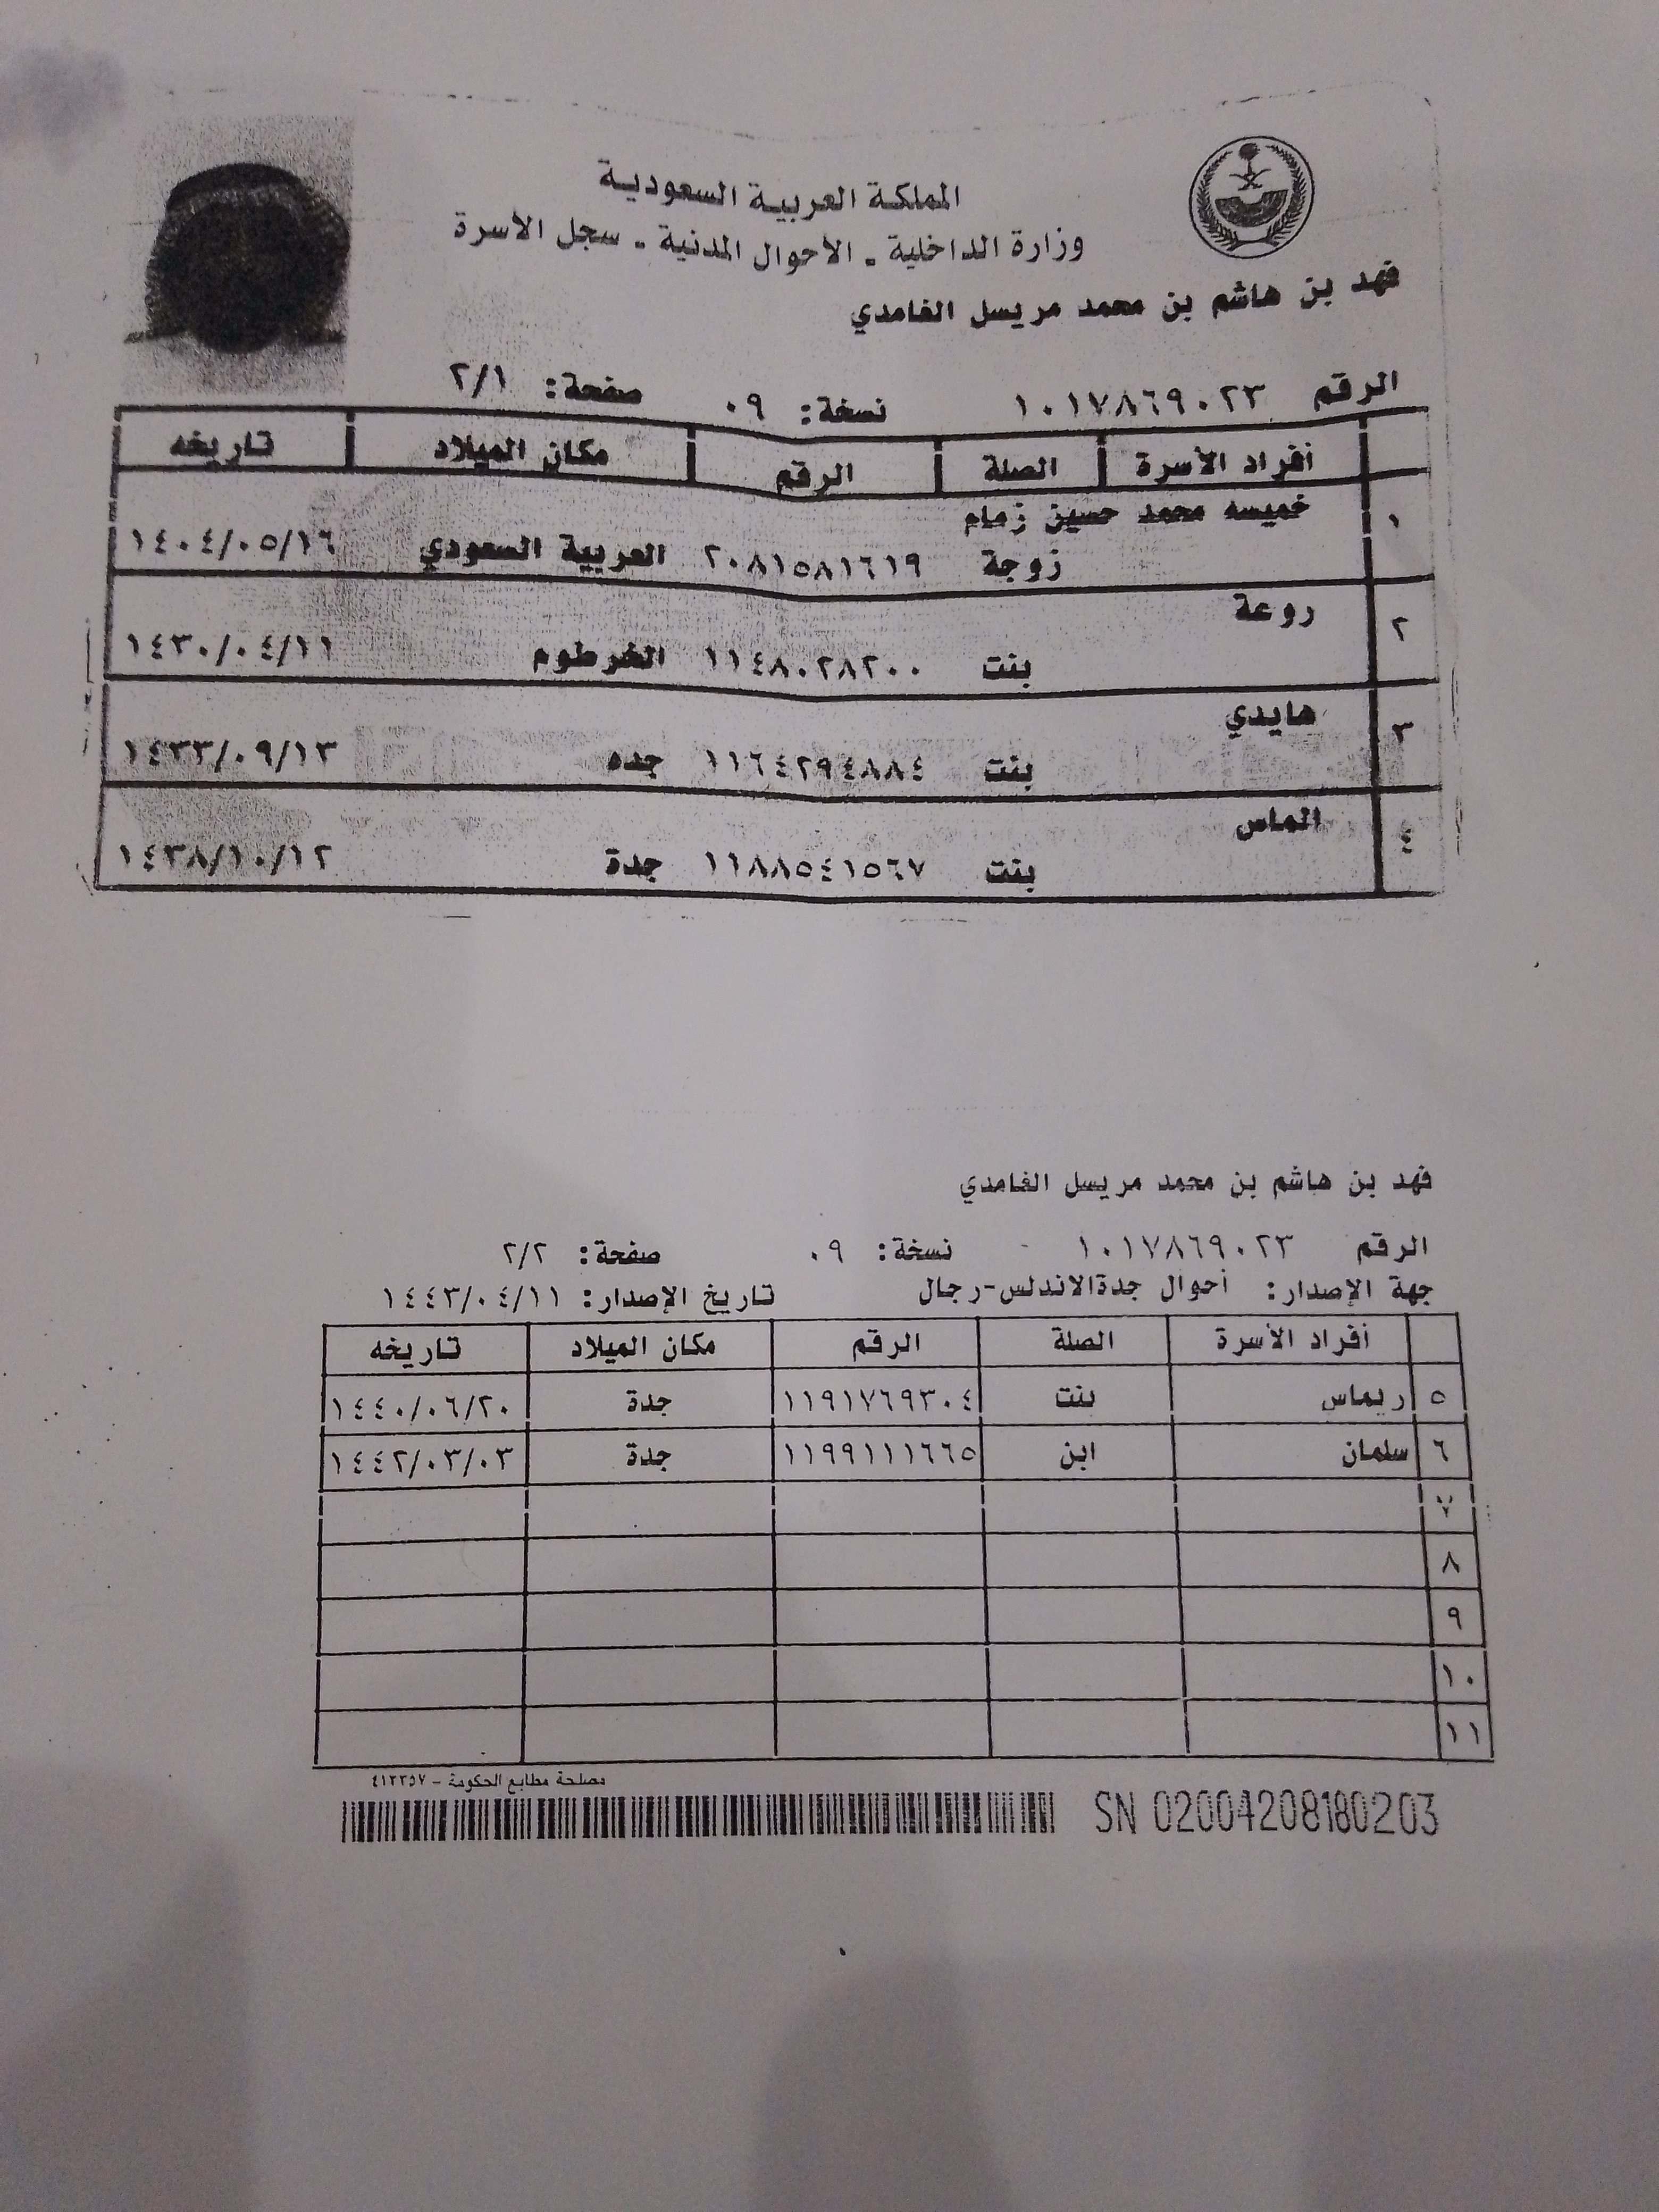 المملكة العربية السعودية
وزارة الداخلية - الأحوال المدنية - سجل الأسرة
فهد بن هاشم بن محمد مريسل الغامدي
الرقم ١٠١٧٨٦٩٠٢٣ نسخة: ٠٩ صفحة: ٢/١
أفراد الأسرة الصلة الرقم مكان الميلاد تاريخه
١ خميسه محمد حسين زمام
زوجة ٢٠٨١٥٨١٦١٩ العربية السعودي ١٤٠٤/٠٥/١٦
٢ روعة
بنت ١١٤٨٠٢٨٢٠٠ الخرطوم ١٤٣٠/٠٤/١١
٣ هايدي
بنت ١١٦٤٢٩٤٨٨٤ جده ١٤٣٣/٠٩/١٣
٤ الماس
بنت ١١٨٨٥٤١٥٦٧ جدة ١٤٣٨/١٠/١٢
فهد بن هاشم بن محمد مريسل الغامدي
الرقم ١٠١٧٨٦٩٠٢٣ نسخة: ٠٩ صفحة: ٢/٢
جهة الإصدار: أحوال جدةالاندلس-رجال تاريخ الإصدار: ١٤٤٣/٠٤/١١
أفراد الأسرة الصلة الرقم مكان الميلاد تاريخه
٥ ريماس بنت ١١٩١٧٦٩٣٠٤ جدة ١٤٤٠/٠٦/٢٠
٦ سلمان ابن ١١٩٩١١١٦٦٥ جدة ١٤٤٢/٠٣/٠٣
٧
٨
٩
١٠
١١
مصلحة مطابع الحكومة - ٤١٢٣٥٧
SN 02004208180203